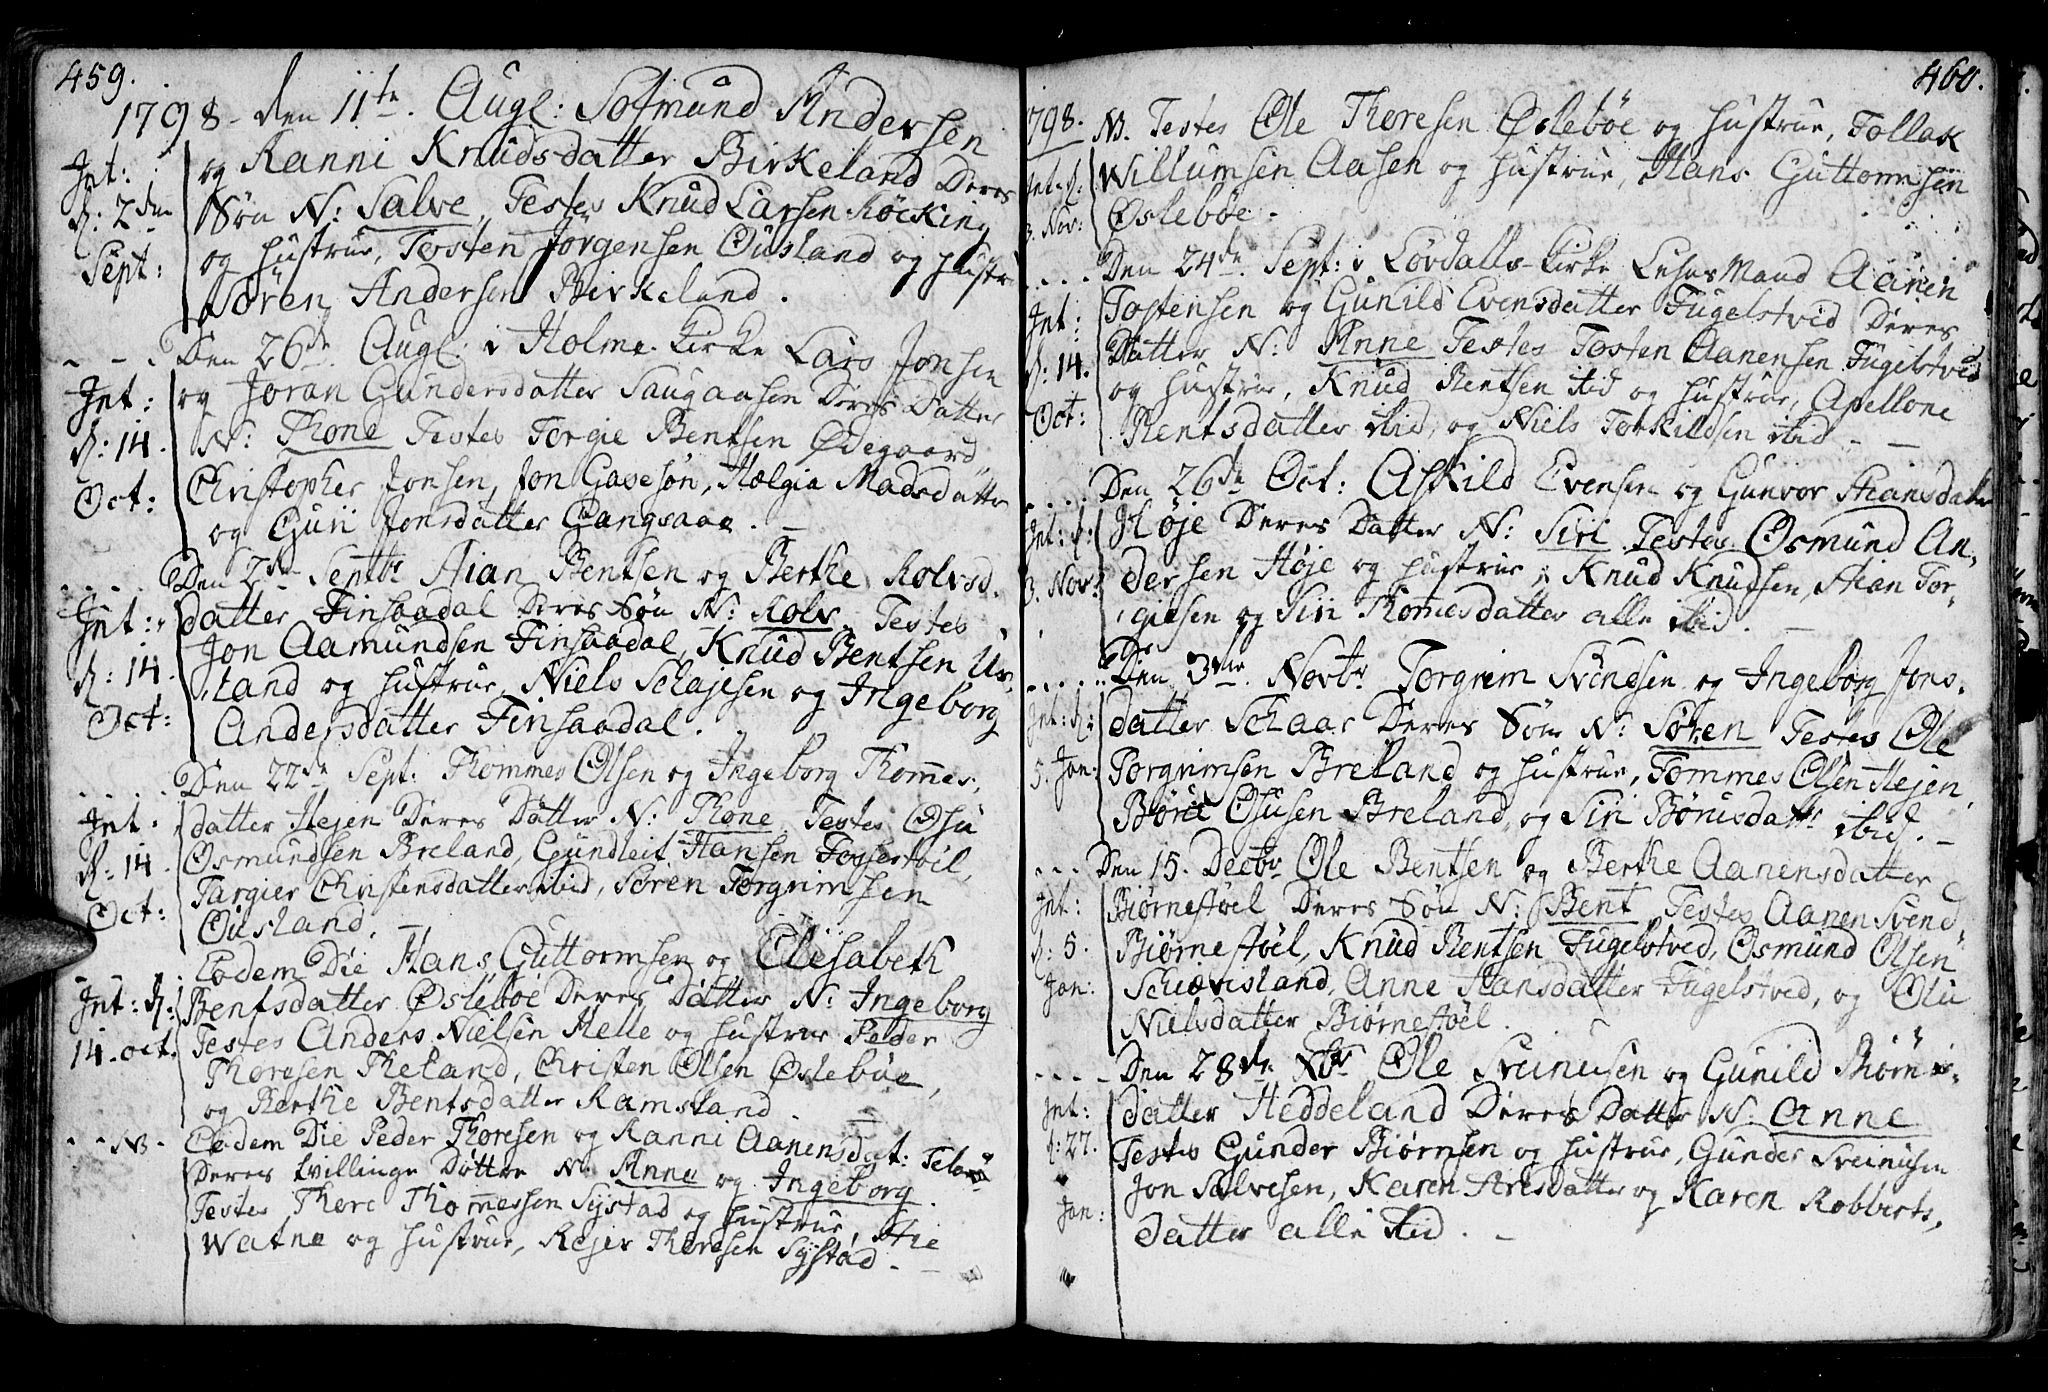 459.
1798 - den 11te. Augl: Sosmund Andersen
og Ranni Knudsdatter Birkeland Deres
Int: R: 2den Sept:
Søn N: Salve, Testes Knud Larsen Røcking
og hustrue, Tosten Jørgensen Ousland og hustr
Søren Andersen Birkeland.
Den 26de Augl. i Holme Kirke Lars Jonsen
og Joran Gundersdatter Saugaasen Deres Datter
Int: R: 14. Oct:
N: Thone Testes Torgie Bentsen Ødegaard
Christopher Jonsen, Jon Gavesøn, Hælgia Madsdatter
og Guri Jonsdatter Gangsaae. -
Den 2den Septbr Stian Bentsen og Berthe Rolvsd.
datter Finsaadal Deres Søn N: Rolv. Testes
Int: R: 14. Oct:
Jon Aamundsen Finsaadal, Knud Bentsen Uv,
land og hustrue, Niels Schajesen og Ingeborg
Andersdatter Finsaadal.
Den 22de Sept: Thommes Olsen og Ingeborg Thom̅es,
datter Stejen Deres Datter N: Thone, Testes Osu
Int: R: 14. Oct:
Osmundsen Breland, Gundleit Hansen Fossestøil,
Targier Christensdatter ibid, Søren Torgrimsen
Ousland.
Eodem Die Hans Guttormsen og Elisabeth
Int: R: 14. oct.
Bentsdatter Øslebøe Deres Datter N: Ingeborg
Testes Anders Nielsen Helle og hustrue Peder
Thoresen Theland, Christen Olsen Øslebøe,
og Berthe Bentsdatter Ramsland.
NB -
Eodem Die Peder Thoresen og Ranni Aanensdat: Teland
Deres tvillinge Døttre N. Anne og Ingeborg.
Testes Thore Thom̅essen Systad og hustrue,
Watne og hustrue, Rejer Thoresen Systad. -
460.
798.
NB. Testes Ole Thoresen Øslebøe og hustrue, Tollak
Int. R: 3. Nov:
Willumsen Aasen og hustrue, Hans Guttormsen
Øslebøe.
Den 24de Sept: i Løvdalls Kirke Lusas Mand Aanen
Int: R: 14. Oct:
Tostensen og Gunild Evensdatter Fugelstvid Deres
Datter N: Anne Testes Tosten Aanensen Fugelstved
og hustrue, Knud Rentsen ibid og hustrue, Apellone
Rentsdatter ibid, og Niels Torkildsen ibid - -
Den 26de Oct: Askild Evensen og Gunvor Stiansdatter
Int: R: 3. Nov:
Høje Deres Datter N: Siri Testes Osmund An,
dersen Høje og hustrue, Knud Knudsen, Stian Tor,
giesen og Siri Thomesdatter alle ibid. -
Den 3die. Novbr Torgrim Svendsen og Ingeborg Jons,
Int: R: 5. Jan:
datter Schaar Deres Søn N: Søren Testes Ole
Torgrimsen Breland og hustrue, Tommes Olsen Stejen,
Børe Osusen Breland, og Siri Børusdattr ibid. -
Den 15. Decbr Ole Bentsen og Berthe Aanensdatter
Int: R: 5. Jan:
Biørnestøel Deres Søn N: Bent Testes Aanen Svend,
Biørnestøel, Knud Rentsen Fugelstved, Osmund Olsen
Schiævisland, Anne Hansdatter Fugelstved, og Olu
Nielsdatter Biørnestøel.
Den 28de Xbr Ole Sveinusen og Gunild Biørns,
Int: R: 27. Jan:
datter Heddeland Deres Datter N: Anne
Testes Gunder Biørnsen og hustrue, Gunder Sveinusen
Jon Salvesen, Karen Arisdatter og Karen Robberts,
datter alle ibid. -